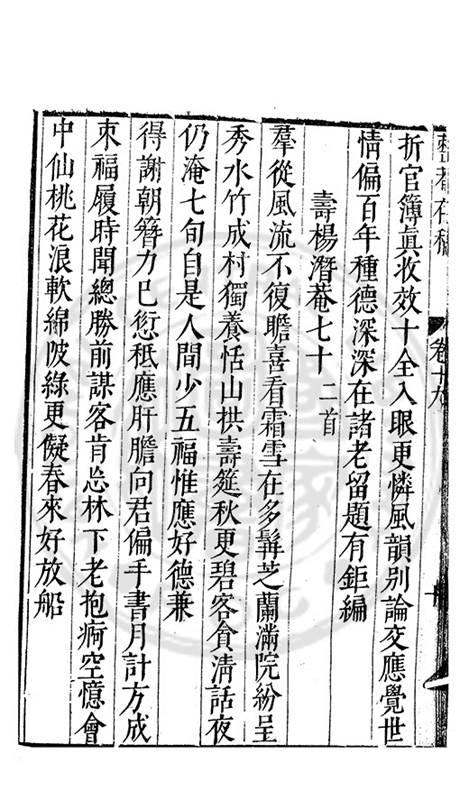 整菴存稿 卷十九
折官簿真收效十全入眼更憐風韻別論交應覺世
情偏百年種德深深在諸老留題有鉅編
壽楊潛菴七十二首
羣從風流不復瞻喜看霜雪在多髯芝蘭滿院紛呈
秀水竹成村獨養恬山拱壽筵秋更碧客貪清話夜
仍淹七旬自是人間少五福惟應好德兼
得謝朝簪力已愆秪應肝膽向君偏手書月計方成
束福履時聞總勝前謀客肯忘林下老抱痾空憶會
中仙桃花浪軟綿陂綠更儗春來好放船